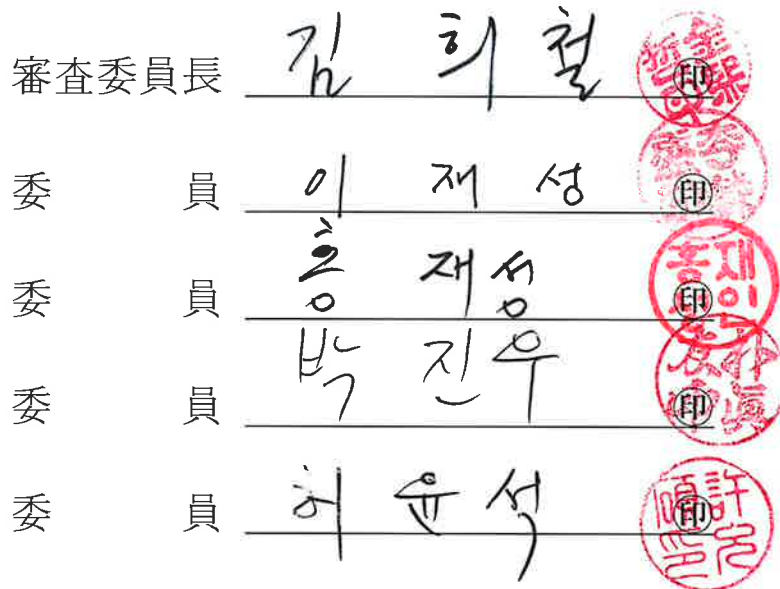 審査委員長 김 희 철 印
委 員 이 재 성 印
委 員 홍 재 성 印
委 員 박 진 우 印
委 員 허 윤 석 印